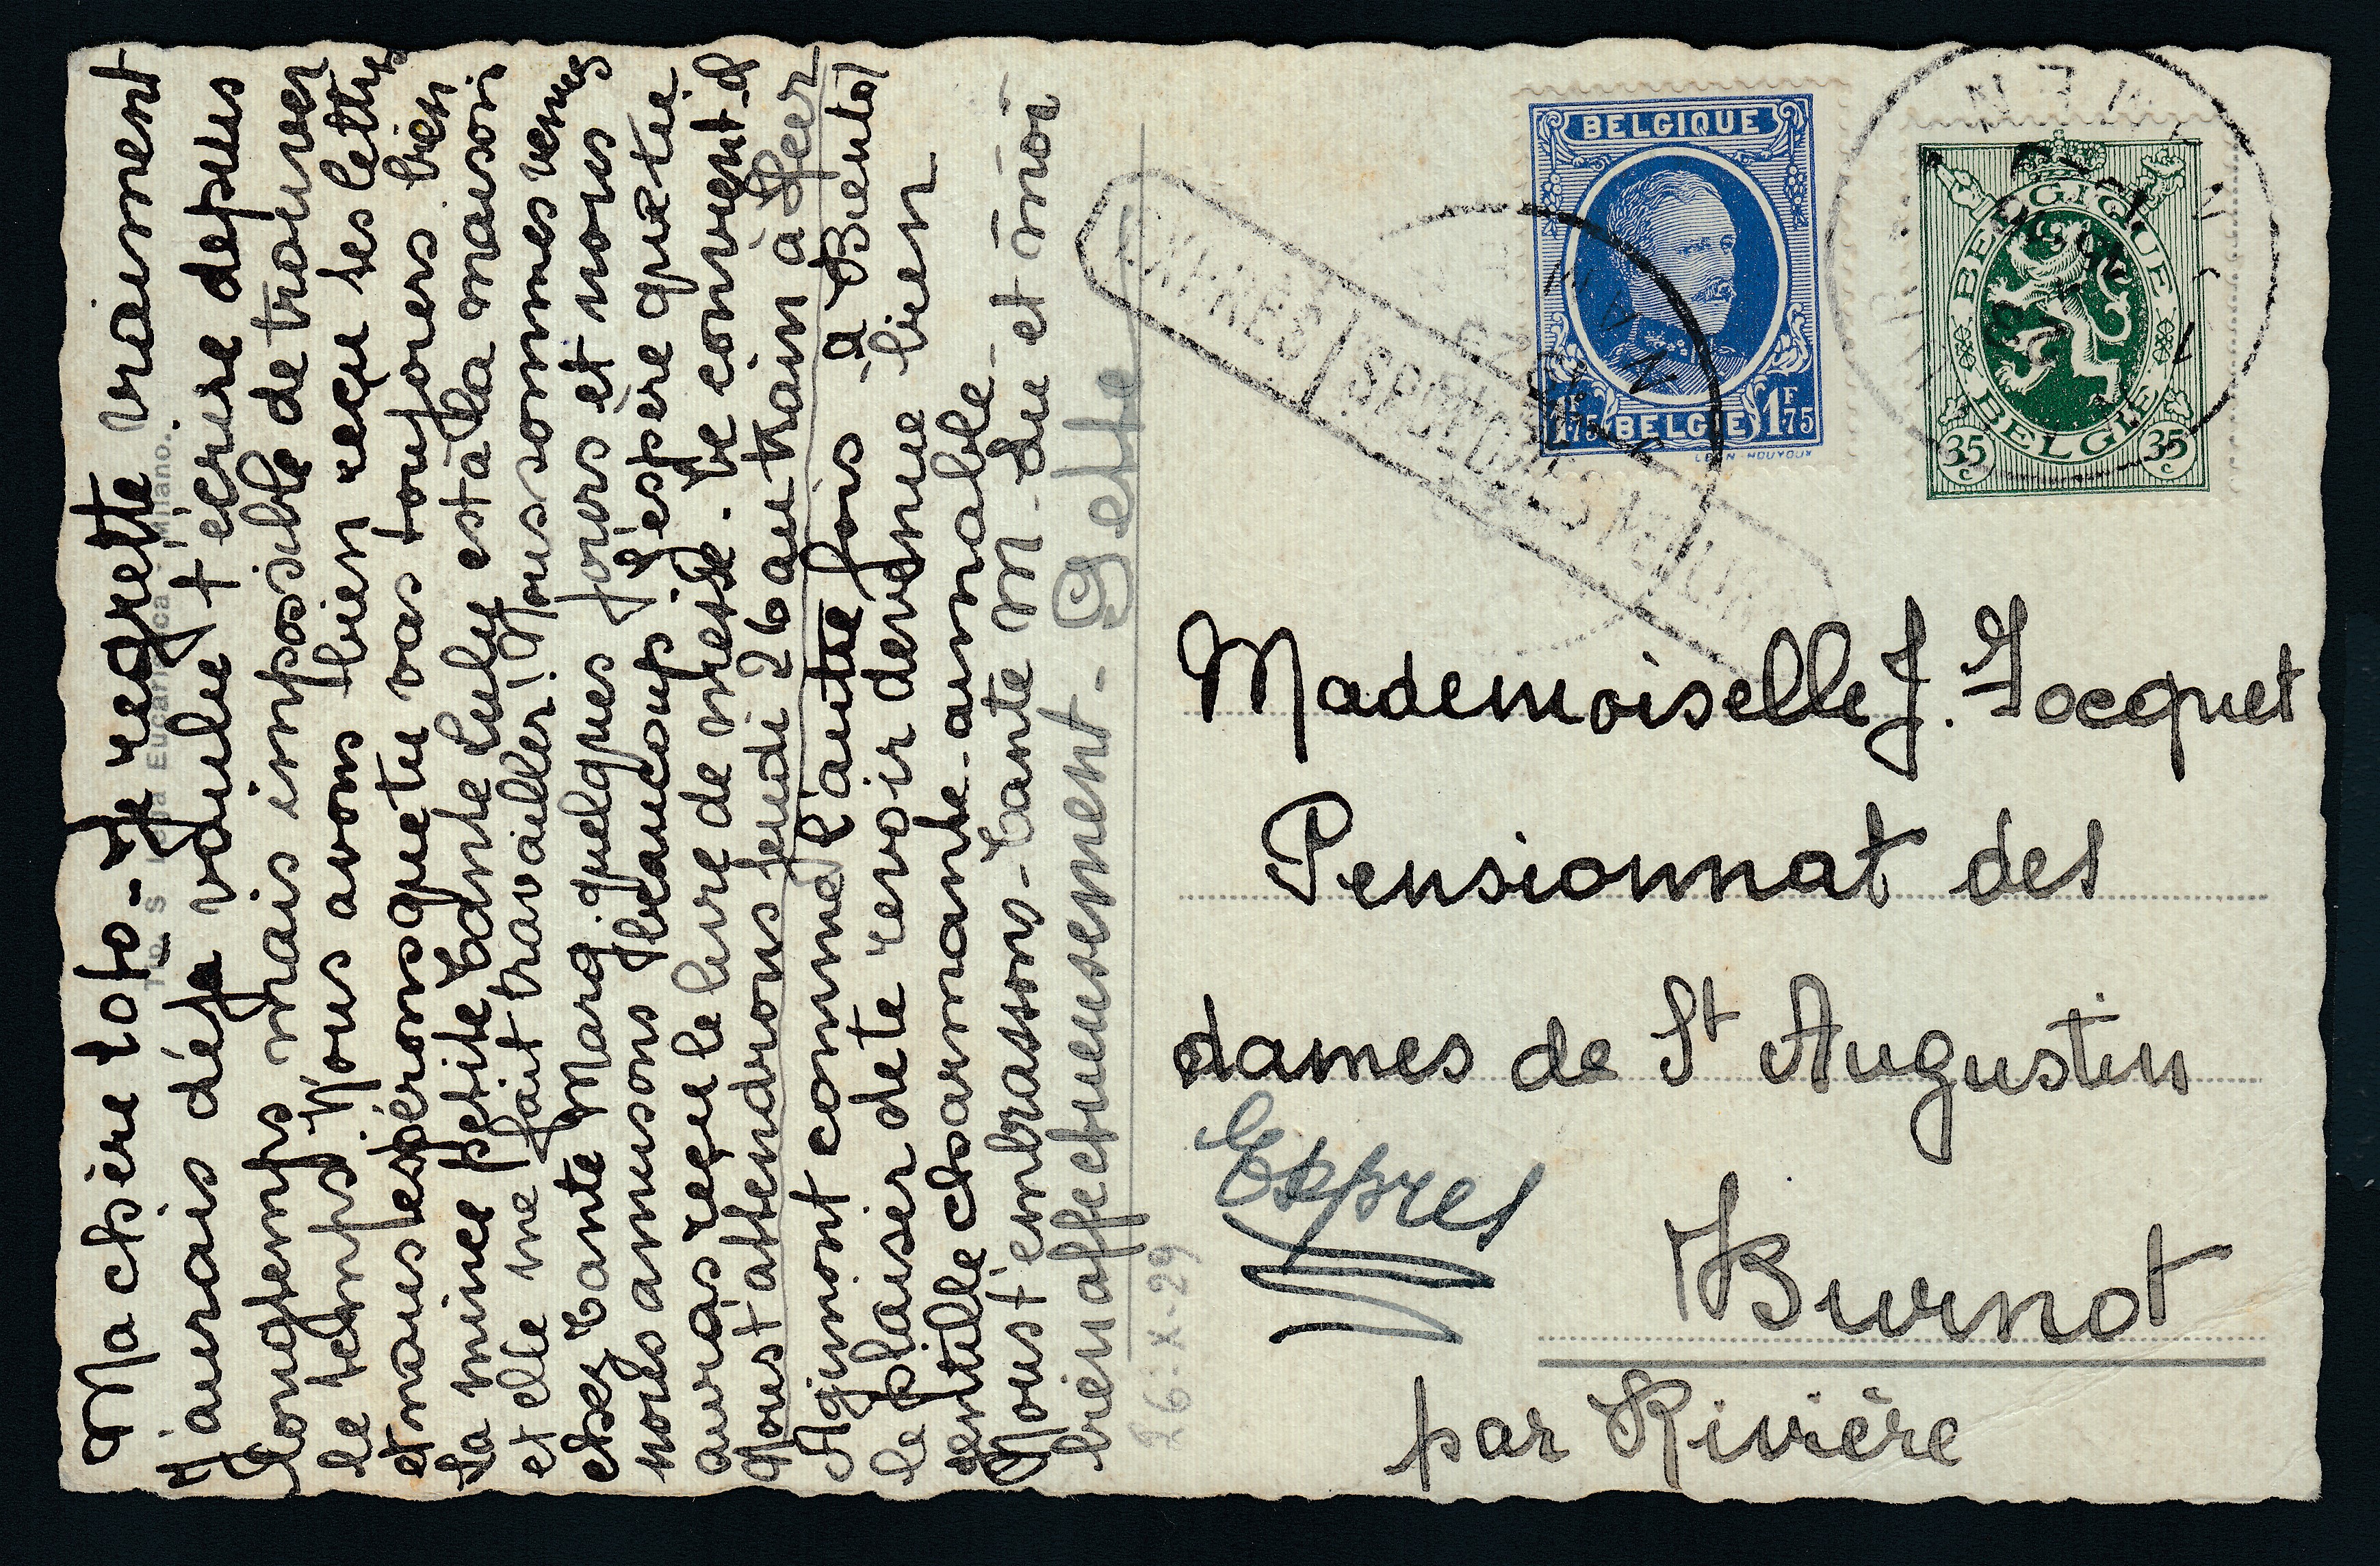 Ma chère toto - Je regrette vraiment
J'aurais déja voulu t'écrire depuis
longtemps mais impossible de trouver
le temps. Nous avons bien reçu tes lettres
et nous espérons que tu vas toujours bien
ta mince petite tante Luly est à la maison
et elle me fait travailler! Nous sommes venues
chez tante Marg. quelques jours et nous
nous amusons beaucoup. J'espère que tu
auras reçu le livre de messe. te convient-il
Nous t'attendrons jeudi 26 au train à
Agimont comme l'autre fois - à Bientot
le plaisir de te revoir devenue bien
gentille charmante - aimable -
Nous t'embrassons - tante M - Lu et moi
bien affectueusement -
26-X-29
BELGIQUE
1F75 BELGIE 1F75
BELGIQUE
BELGIE
35c 35c
EXPRES
1929
Mademoiselle J. Jocquet
Pensionnat des
dames de St Augustin
Expres
Burnot
par Rivière